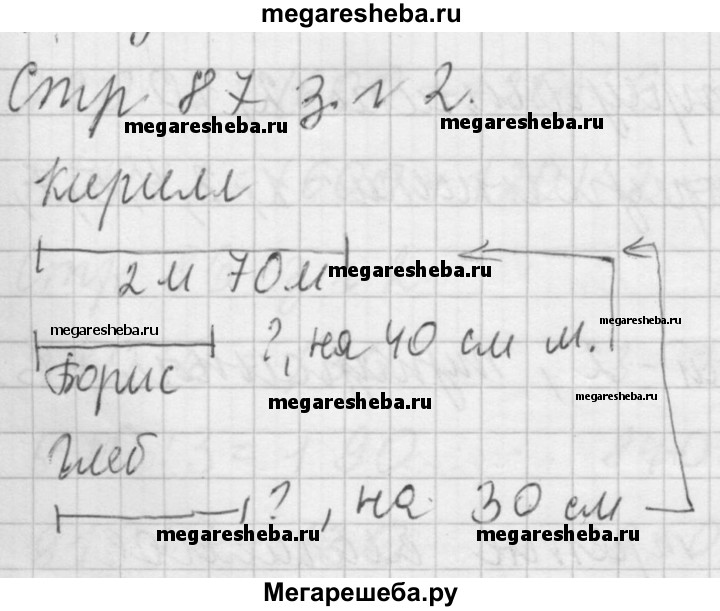 megaresheba.ru
Стр 87 з. № 2.
megaresheba.ru megaresheba.ru
Кирилл
2 м 70 м
megaresheba.ru
megaresheba.ru
?, на 40 см м.
megaresheba.ru
Борис
megaresheba.ru
megaresheba.ru
Глеб
?, на 30 см
megaresheba.ru megaresheba.ru
Мегарешеба.ру